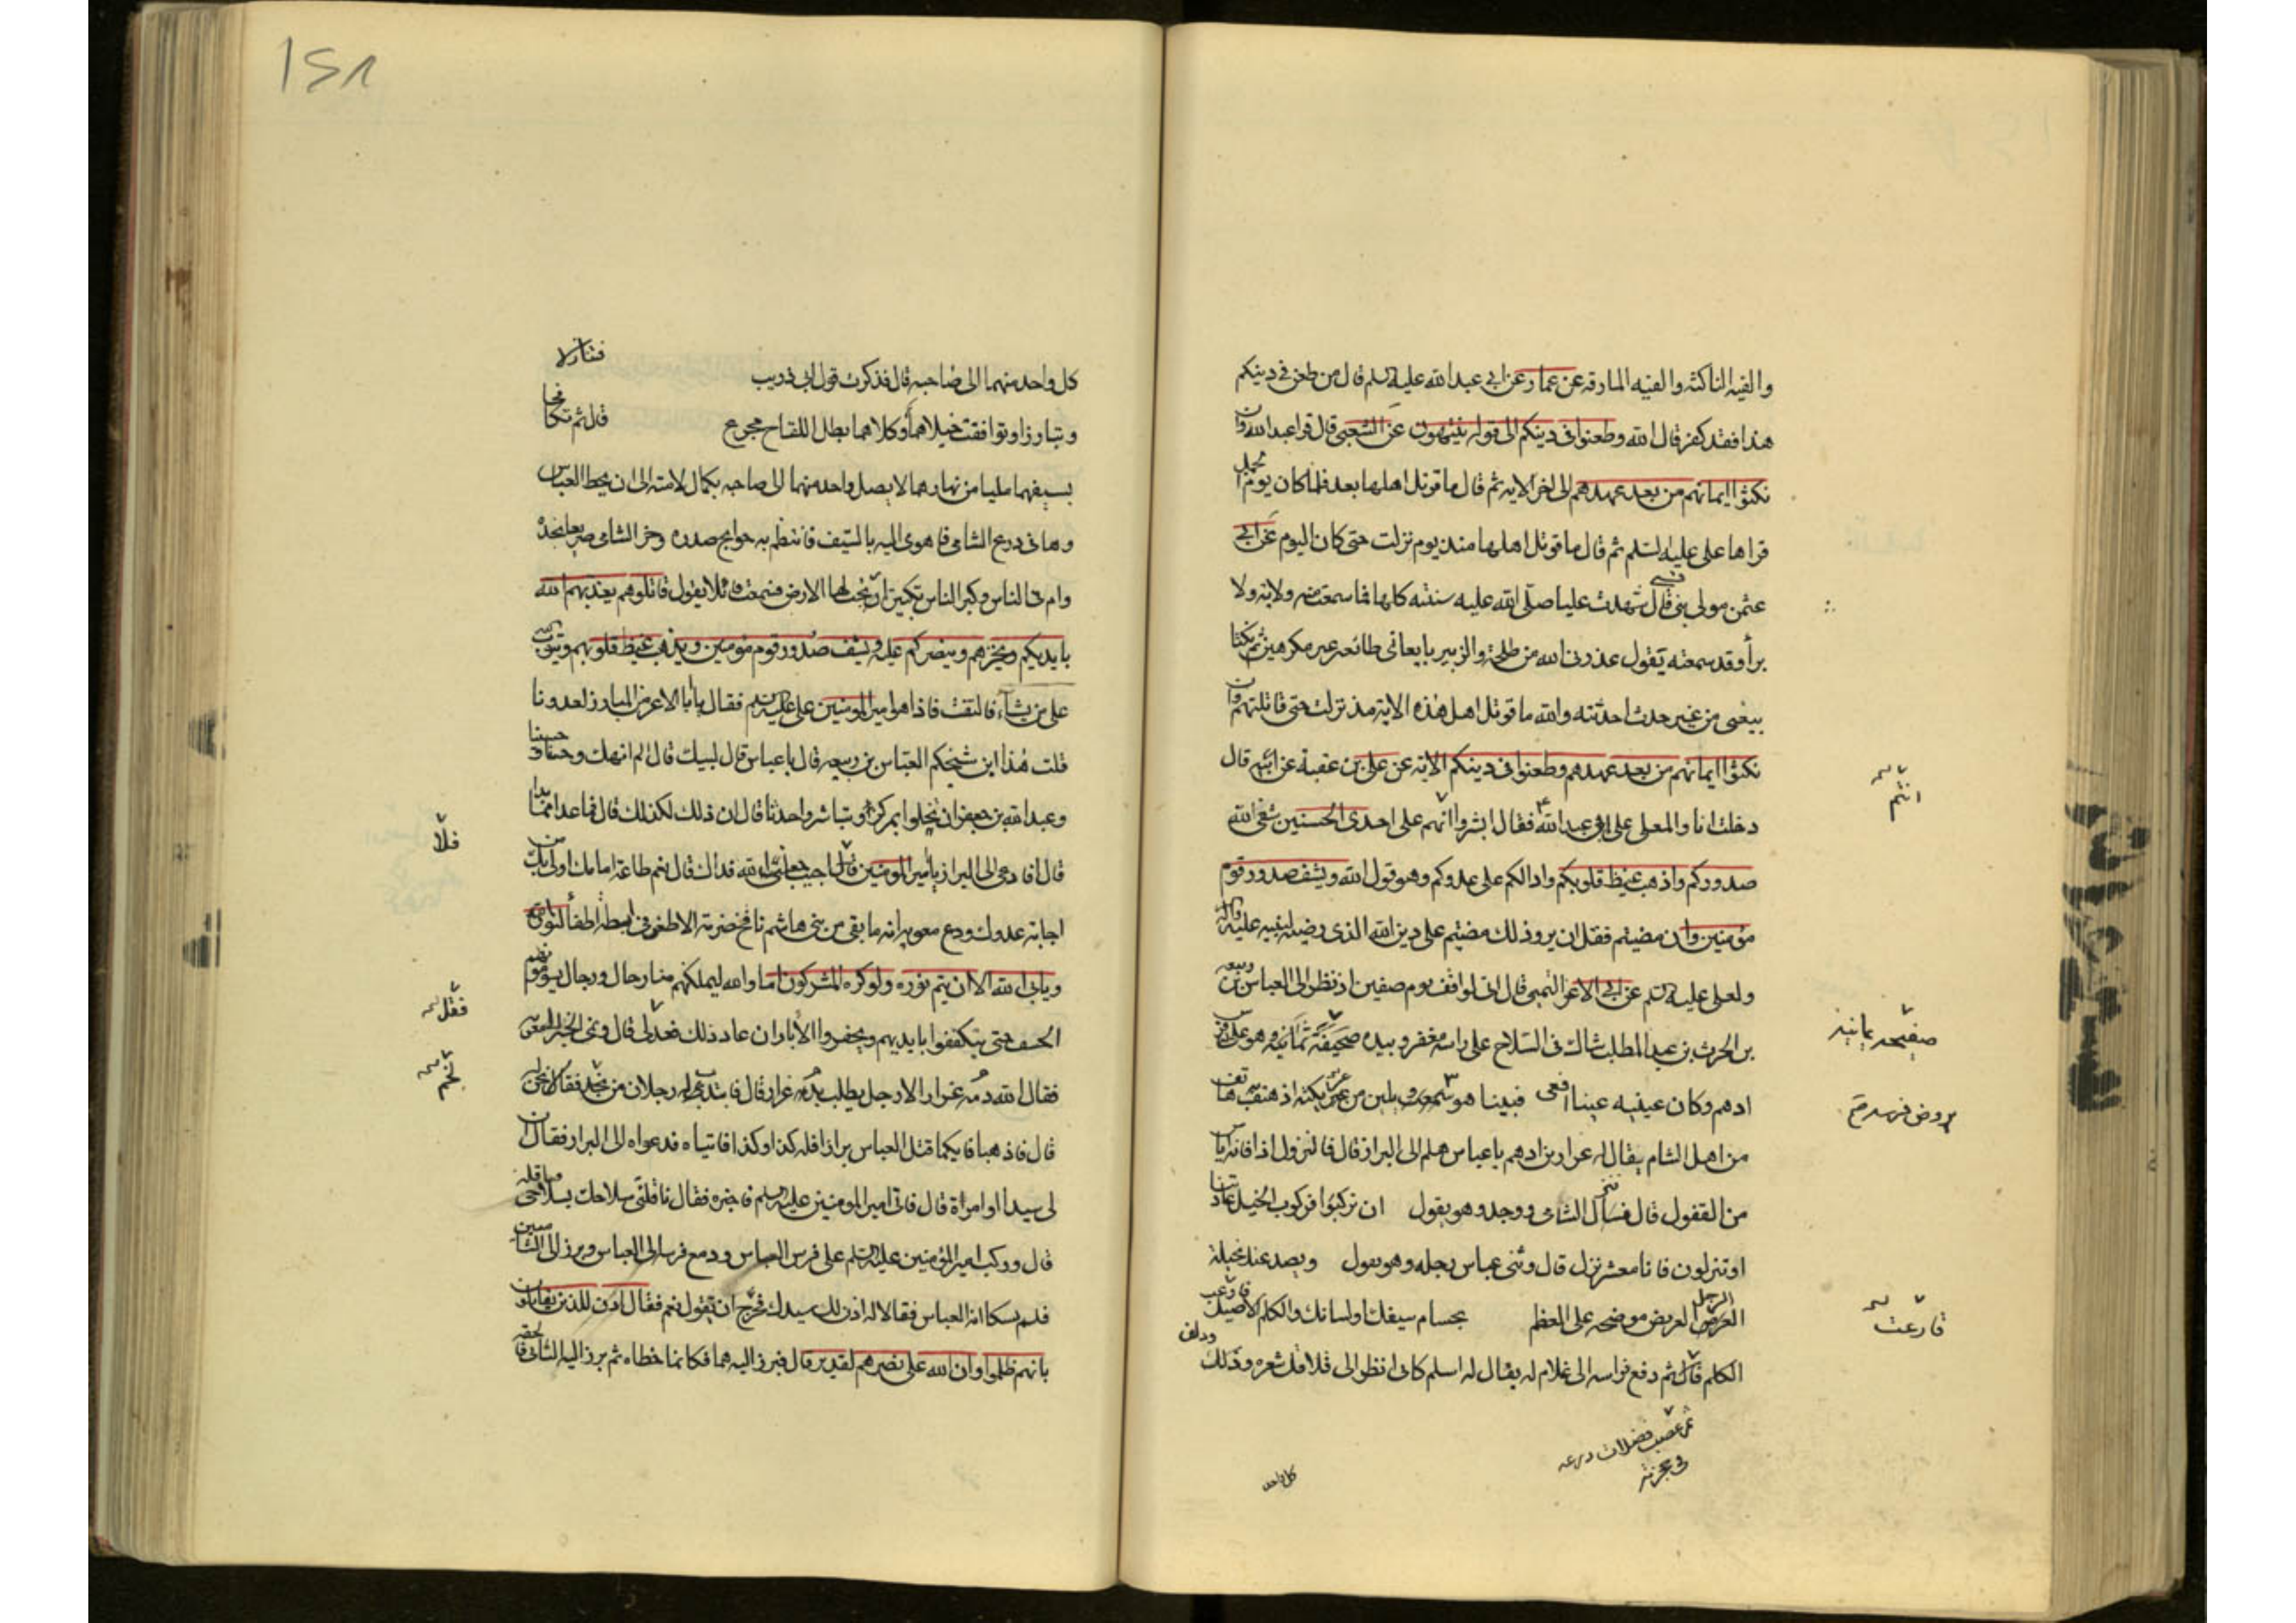 والفيه الناكثه والفيه المارقه عن عمار عن ابي عبد الله عليه السلم قال من طعن في دينكم
هذا فقد كفر قال الله وطعنوا في دينكم الى قوله ينتهون عن الشعبي قال قرا عبد الله وان
نكثوا ايمانهم من بعد عهدهم الى اخر الايه ثم قال ما قوتل اهلها بعد فلما كان يوم الجمل
قراها علي عليه السلم ثم قال ما قوتل اهلها منذ يوم نزلت حتى كان اليوم عن ابي
عثمن مولى بني قصي قال شهدت عليا صلى الله عليه سنته كلها فما سمعت منه ولاية ولا
برأ وقد سمعته يقول عذرني الله من طلحة والزبير بايعاني طائعه غير مكرهين ثم نكثا
بيعتي من غير حدث احدثته والله ما قوتل اهل هذه الايه مذ نزلت حتى قاتلتهم وان
نكثوا ايمانهم من بعد عهدهم وطعنوا في دينكم الايه عن علي بن عقبة عن ابيه قال
دخلت انا والمعلى على ابي عبد الله ع فقال ابشروا انهم على احدى الحسنيين شفى الله
انتم
صدوركم واذهب غيظ قلوبكم وادالكم على عدوكم وهو قول الله ويشف صدور قوم
مؤمنين وان مضيتم فقل ان يروا ذلك مضيتم على دين الله الذي رضيه لنبيه عليه واله
ولعلي عليه السلم عن ابي الاعز التميمي قال اني لواقف يوم صفين اذ نظرت الى العباس بن ربيعه
بن الحرث بن عبد المطلب شاك في السلاح على راسه مغفر وبيده صحيفة يمانيه وهو على فرس
صفيحه يمانيه
ادهم وكان عينيه عينا افعى فبينا هو يروض ويلين من عريكته اذ هتف به هاتف
يروض فرسه
من اهل الشام يقال له عرار بن ادهم يا عباس هلم الى البراز قال فالنزول اذا فانه اياس
من القفول قال فنزل الشامي ووجد وهو يقول ان تركبوا فركوب الخيل عادتنا
او تنزلون فانا معشر نزل قال وثنى عباس رجله وهو يقول ويصد عنك مخيلة
الرجل العريض موضحه على العظم بحسام سيفك او لسانك والكلم الاصيل
قارعت
الكلم قال ثم دفع فراسه الى غلام له يقال له اسلم كاني انظر الى فلافل شعره ودلف
ثم عصب فضلات درعه
في حجزته
كل واحد
١٤٨
كل واحد منهما الى صاحبه قال فذكرت قول ابي ذويب
فتنازلا وتبارزا وتوافقت خيلاهما وكلاهما بطل اللقاح مجرح قال ثم تكافحا
بسيفهما مليا من نهارهما لا يصل واحد منهما الى صاحبه بكمال لامته الى ان لحظ العباس
وها في درع الشامي فاهوى اليه بالسيف فانتظم به جوانح صدره وخر الشامي صريعا لخده
وام في الناس وكبر الناس تكبيرة ارتجت لها الارض فسمعت قائلا يقول قاتلوهم يعذبهم الله
بايديكم ويخزهم وينصركم عليهم ويشف صدور قوم مؤمنين ويذهب غيظ قلوبهم ويتوب الله
على من يشاء فالتفت فاذا هو امير المؤمنين علي عليه السلم فقال يا ابا الاعز من المبارز لعدونا
قلت هذا ابن شيخكم العباس بن ربيعه قال يا عباس قال لبيك قال الم انهك وحسنا وحسينا
وعبد الله بن جعفر ان تخلوا بمركز او تباشروا حدثا قال ان ذلك لكذلك قال فما عدا مما بدا
فلا
قال افادعى الى البراز يا امير المؤمنين فلا اجيب جعلني الله فداك قال نعم طاعة امامك اولى بك من
اجابة عدوك ودع معويه انه ما بقي من بني هاشم نافخ ضرمة الا طعن في نيطه اطفاء لنور الله
ويابى الله الا ان يتم نوره ولو كره المشركون اما والله ليملكنهم منا رجال ورجال يسومونهم
الخسف حتى يتكففوا بايديهم ويحفروا الابار ان عاد ذلك فعدلي قال ونمى الخبر الى معويه
فقل
فقال الله دم عرار الا رجل يطلب بدم عرار قال فانتدب له رجلان من لخم فقالا نحن له
لخم
قال فاذهبا فايكما قتل العباس برازا فله كذا وكذا فاتياه فدعواه الى البراز فقال ان
لي سيدا اوامره قال فاتى امير المؤمنين عليه السلم فاخبره فقال ناقلني سلاحك بسلاحي فناقله
قال وركب امير المؤمنين عليه السلم على فرس العباس ودفع فرسه الى العباس وبرز الى الشاميين
فلم يشكا انه العباس فقالا له اذن لك سيدك فتحرج ان يقول نعم فقال اذن للذين يقاتلون
بانهم ظلموا وان الله على نصرهم لقدير قال فبرز اليه احدهما فكانما اخطاه ثم برز اليه الثاني فالحقه